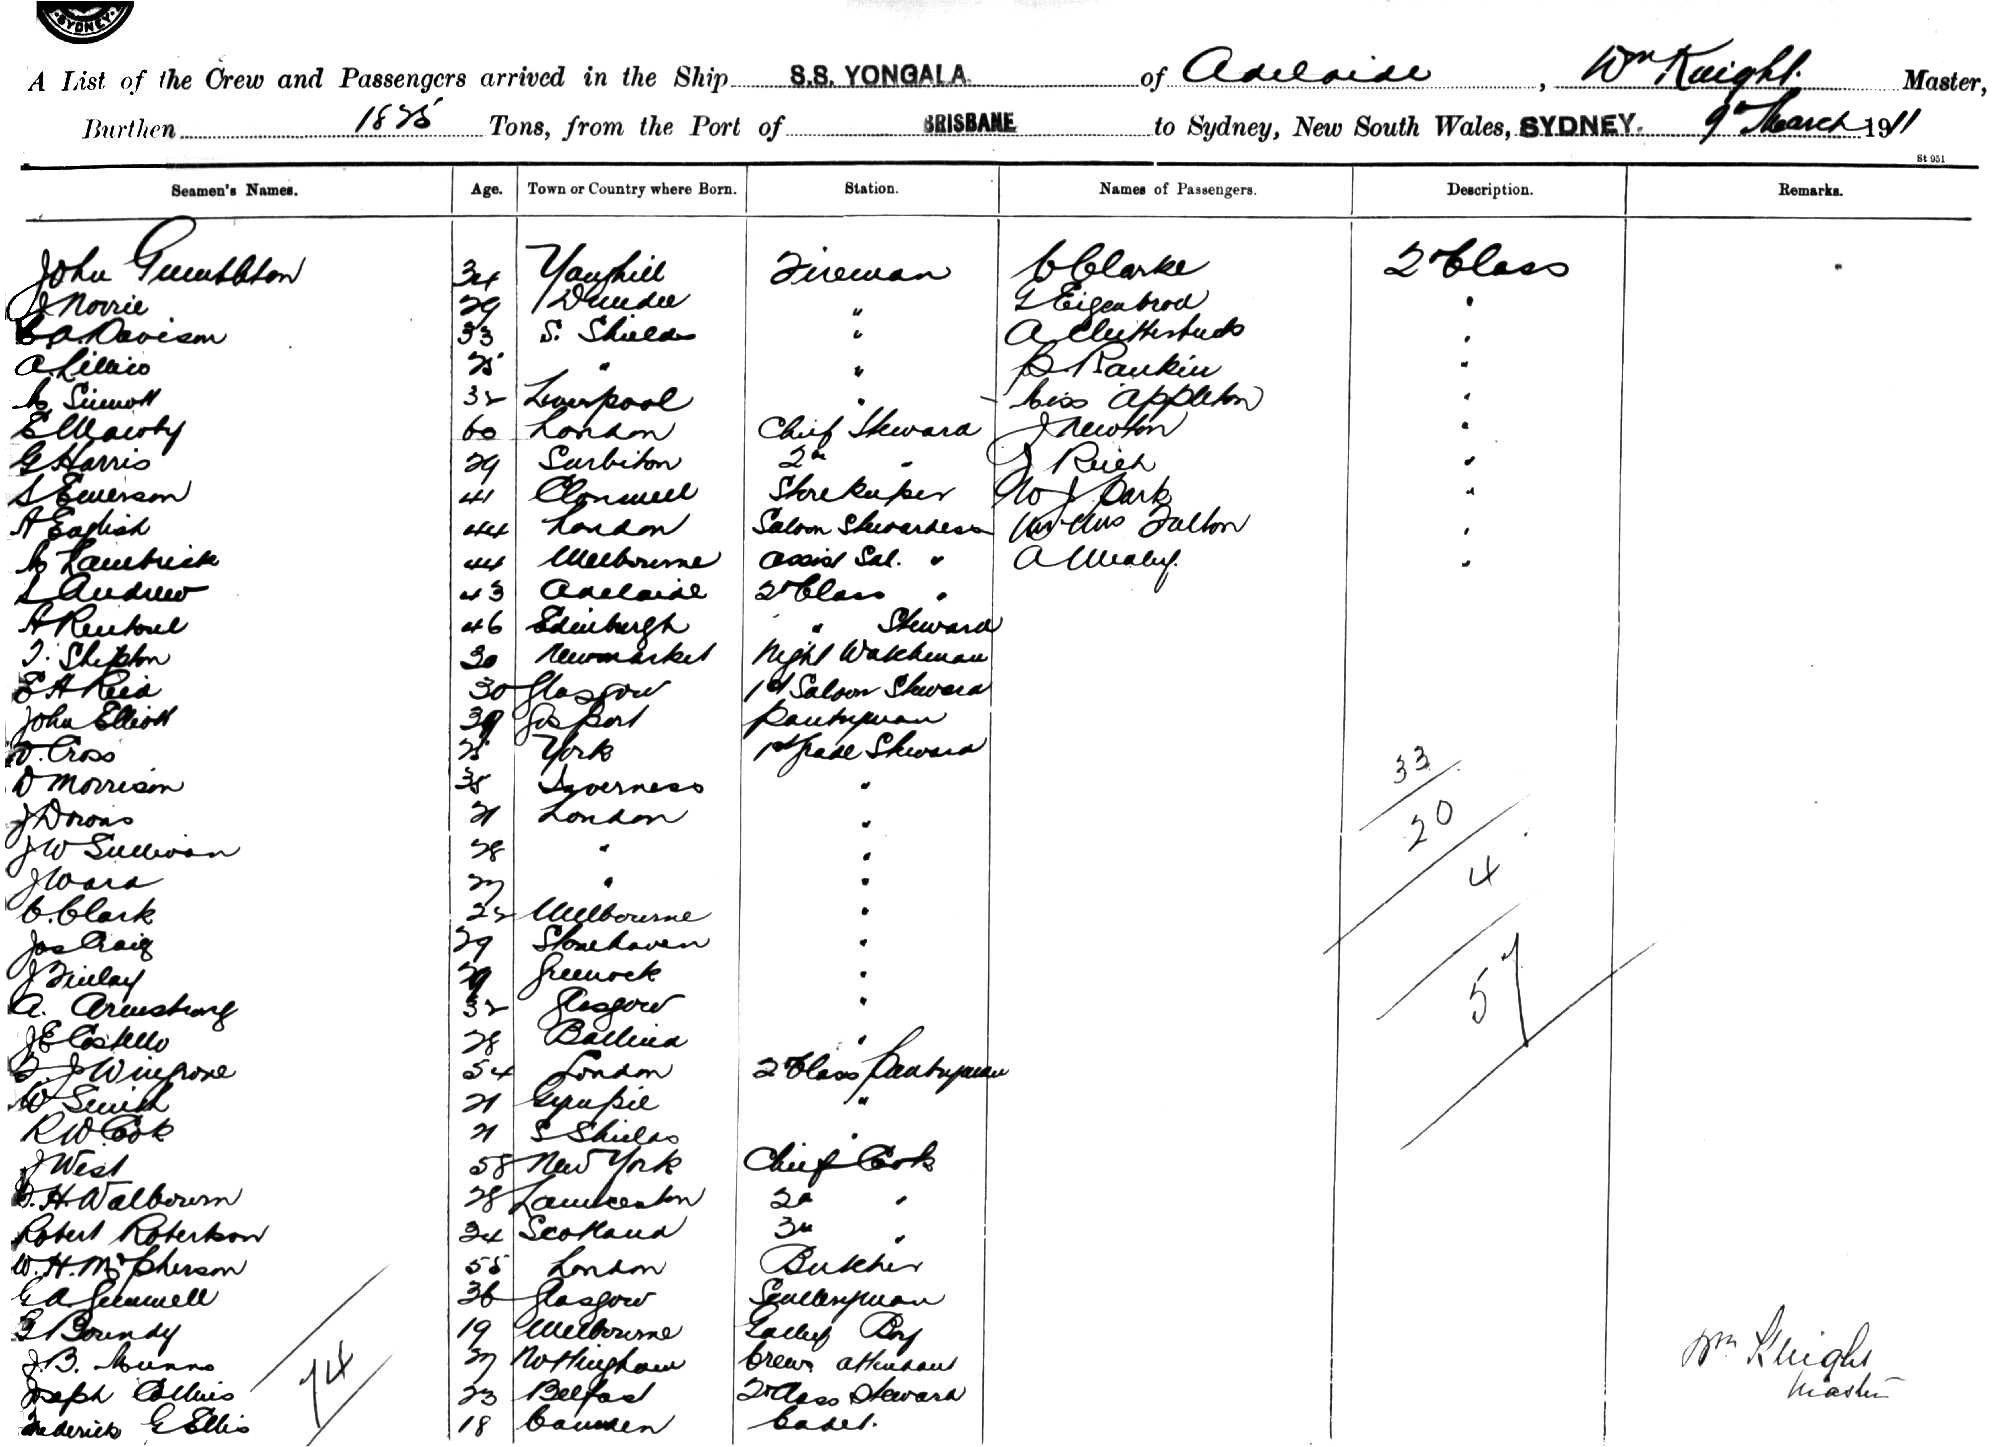 SYDNEY
A List of the Crew and Passengers arrived in the Ship S.S. YONGALA of Adelaide, Wm Knight Master,
Burthen 1825 Tons, from the Port of BRISBANE to Sydney, New South Wales, SYDNEY. 9 March 1911
St 951
Seamen's Names. Age. Town or Country where Born. Station. Names of Passengers. Description. Remarks.
John 34 Youghill Fireman C Clarke 2d Class
J Norrie 29 Dundee " G Eigenbrod "
C A Davison 33 S. Shields " A Clutterbuck "
A Lillico 25 " " B Rankin "
32 Liverpool " Miss Appleton "
E Mawby 60 London Chief Steward J Newton "
G Harris 29 Surbiton 2nd " J "
S Emerson 41 Clonmell Storekeeper Park "
A English 44 London Saloon Stewardess Mr Mrs Fulton "
Lambrick 44 Melbourne Assist Sal. " A "
L Andrew 43 Adelaide 2d Class "
A Rentoul 46 Edinburgh " Steward
T. Shipton 30 Newmarket Night Watchman
E H Reid 30 Glasgow 1st Saloon Steward
John Elliott 39 Gosport Pantryman
D. Cross 25 York 1st Grade Steward
D Morrison 38 Inverness "
J Downs 21 London "
J W Sullivan 28 " "
J Ward 27 " "
C. Clark 22 Melbourne "
Jas Craig 29 Stonehaven "
J Finlay 29 Greenock "
A. Armstrong 32 Glasgow "
J E Costello 28 Ballina "
F. J Wingrove 54 London 2d Class Pantryman
W Smith 21 Gympie "
R W Cook 21 S Shields "
J West 58 New York Chief Cook
F. H. Walbourn 28 Launceston 2nd "
Robert Robertson 24 Scotland 3rd "
W. H. McPherson 55 London Butcher
G A Gemmell 36 Glasgow Sculleryman
G Boundy 19 Melbourne Galley Boy
J. B. Munro 27 Nottingham Crews attendant
Joseph Collins 23 Belfast 2d Class Steward
Frederick G Ellis 18 Camden Cadet.
33
20
4
57
74
Wm Knight
Master